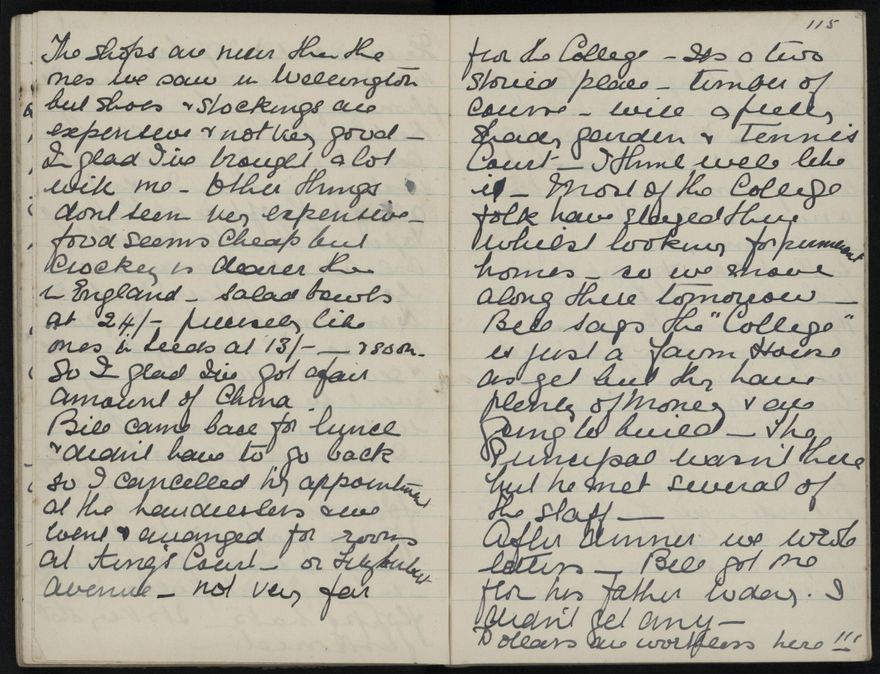 The shops are nicer than the
ones we saw in Wellington
but shoes & stockings are
expensive & not very good —
I'm glad I've brought a lot
with me — Other things
dont seem very expensive —
food seems cheap but
Crockery is dearer than
in England — Salad bowls
at 24/- precisely like
ones in Leeds at 13/- — & so on —
So I'm glad I've got a fair
amount of China.
Bill came back for lunch
& didn't have to go back
so I cancelled my appointment
at the hairdressers & we
went & arranged for rooms
at King's Court — on Fitzherbert
Avenue — not very far
115
from the College — Its a two
storied place — timber of
course — with a pretty
shady garden & Tennis
Court — I think we'll like
it — Most of the College
folk have stayed there
whilst looking for permanent
homes — so we move
along there tomorrow —
Bill says the "College"
is just a farm House
as yet but they have
plenty of money & are
going to build — The
Principal wasn't there
but he met several of
the staff —
After dinner we wrote
letters — Bill got one
from his father today. I
didn't get any —
Dollars are worthless here !!!